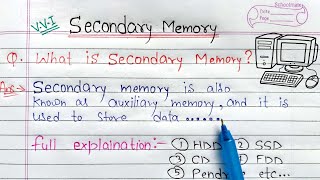 V.V.I
Secondary Memory
Schoolmate
Date
Page
Q. What is Secondary Memory?
Ans:- Secondary memory is also
known as auxiliary memory, and it is
used to store data......
full explaination:- ① HDD ② SSD
③ CD ④ FDD
⑤ Pendrive etc...